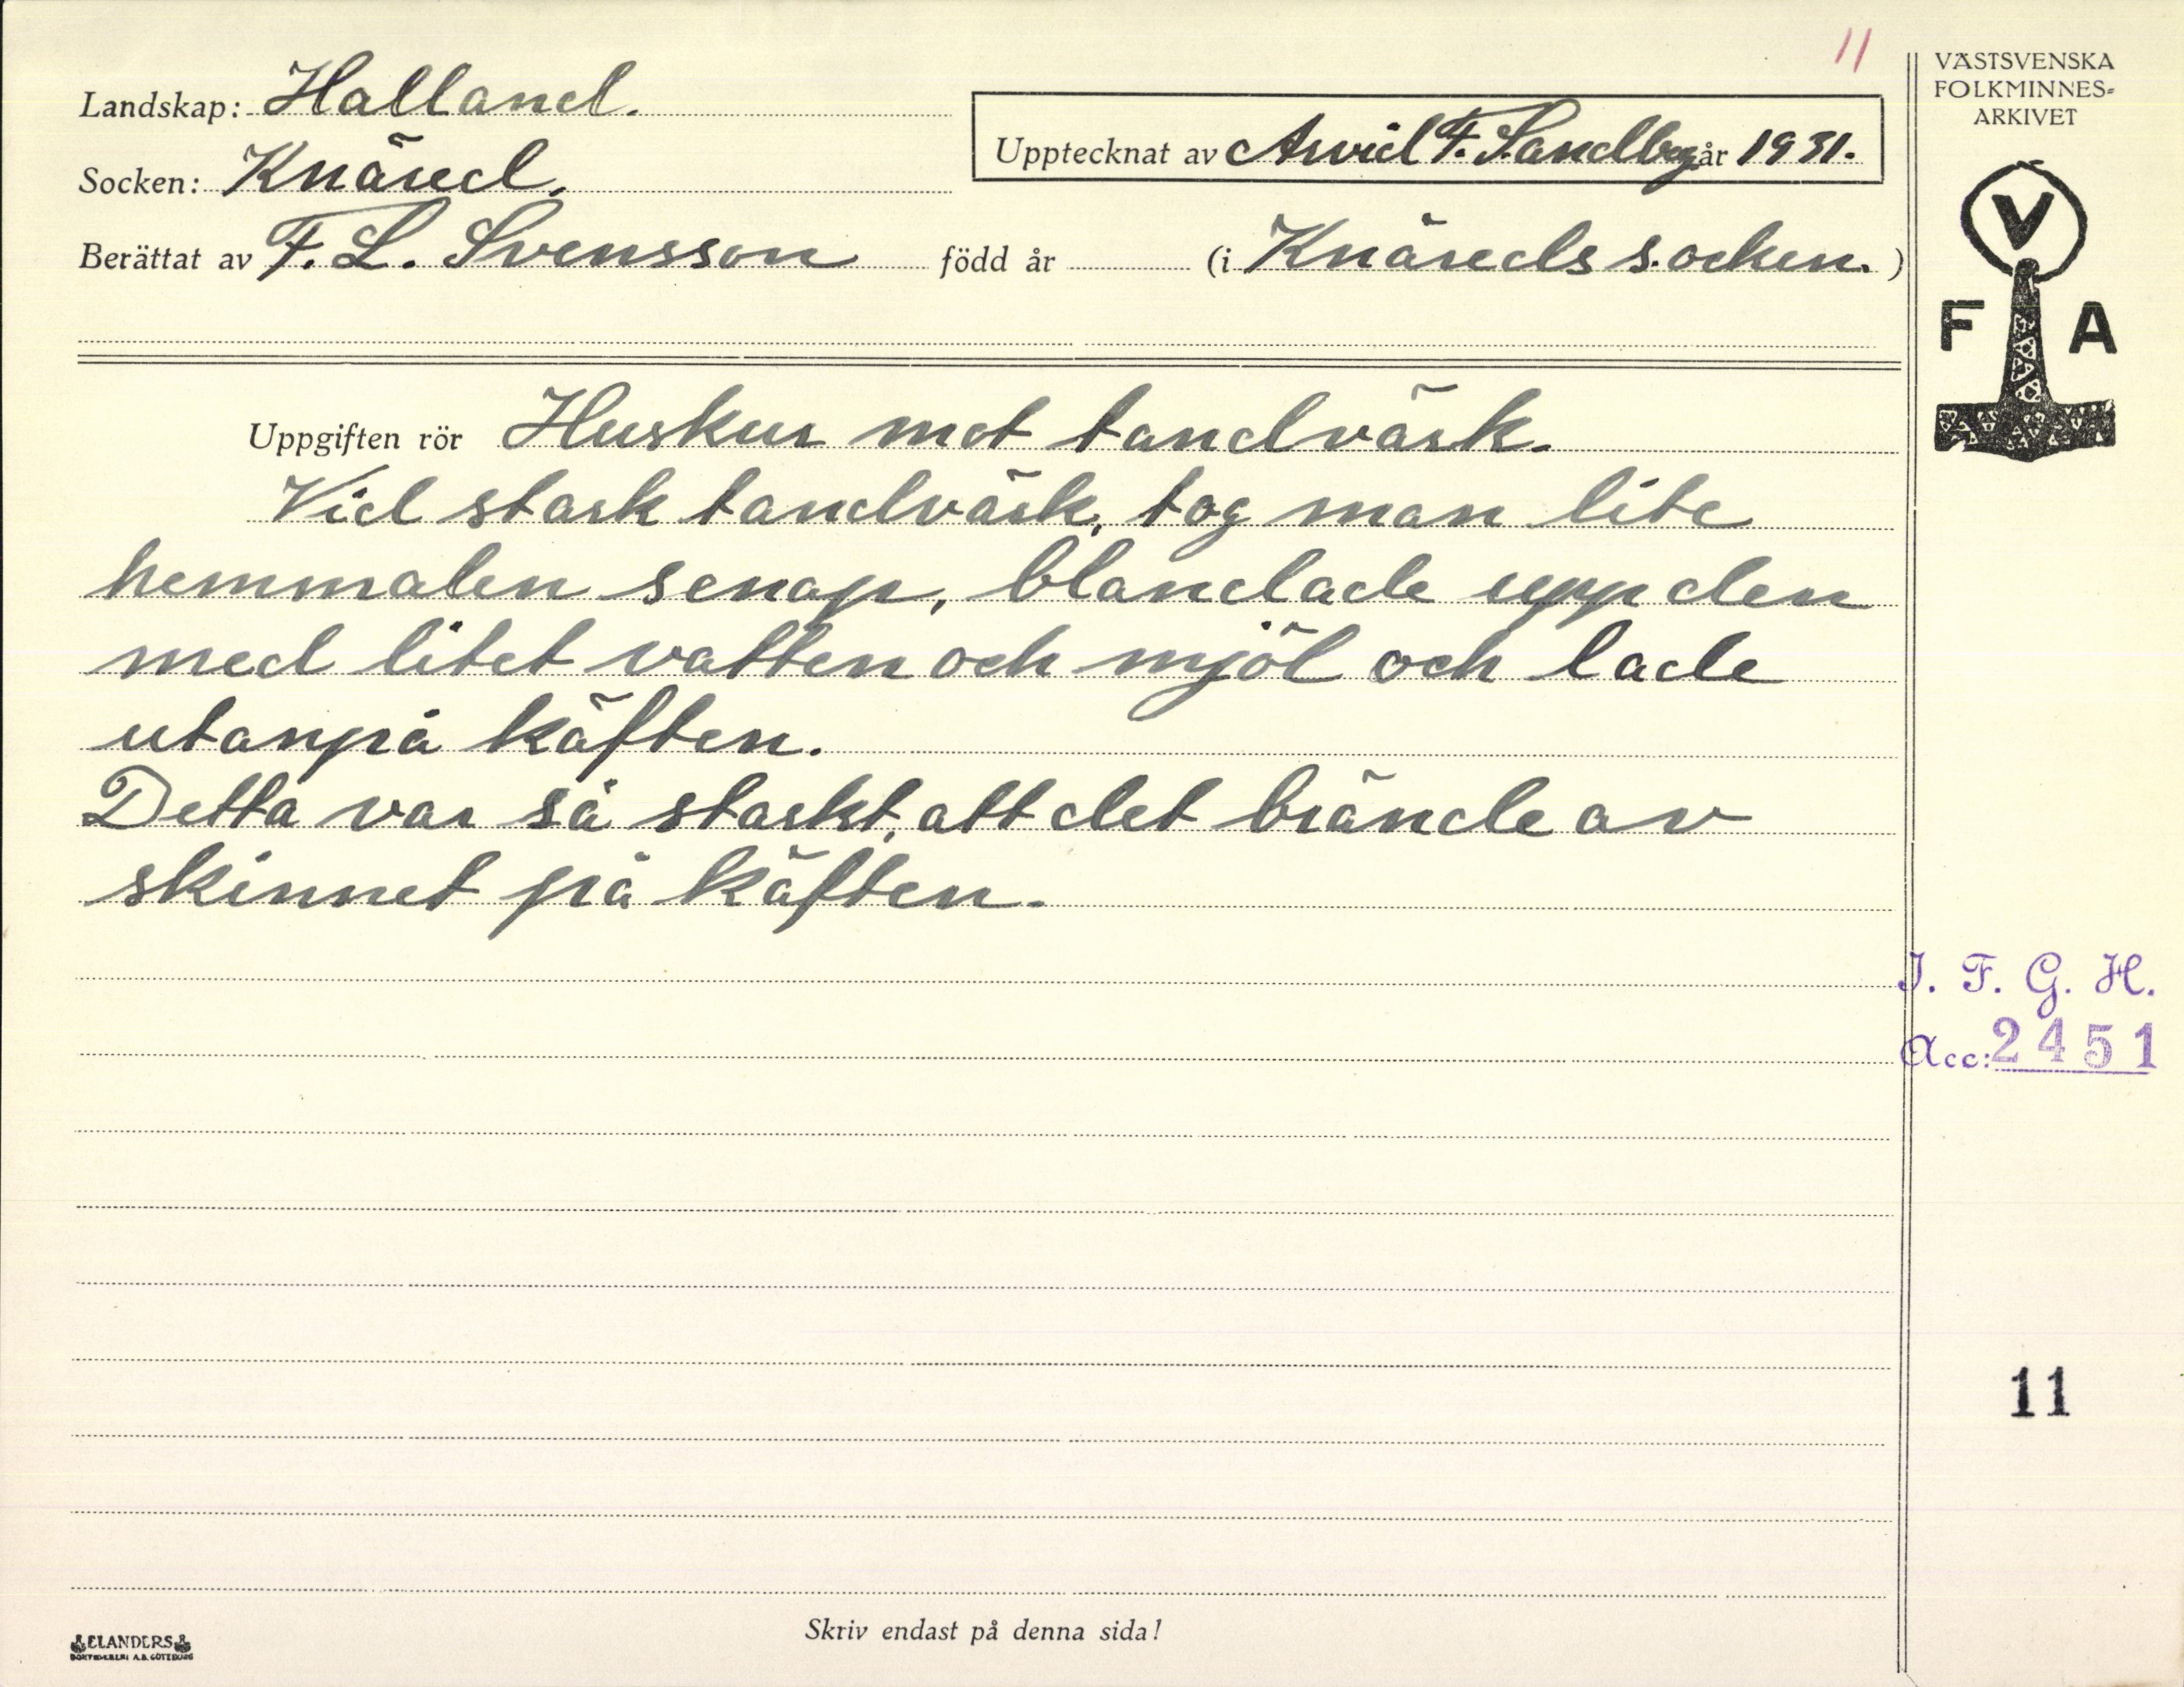 11
VÄSTSVENSKA
FOLKMINNES-
ARKIVET
Landskap: Halland.
Upptecknat av Arvid F. Sandberg år 1931.
Socken: Knäred.
Berättat av F. L. Svensson född år (i Knäreds socken.)
V
F A
Uppgiften rör Huskur mot tandvärk.
Vid stark tandvärk, tog man lite
hemmalen senap, blandade upp den
med litet vatten och mjöl och lade
utanpå käften.
Detta var så starkt, att det brände av
skinnet på käften.
I. F. G. H.
Acc: 2451
11
Skriv endast på denna sida!
ELANDERS
BOKTRYCKERI A.B. GÖTEBORG